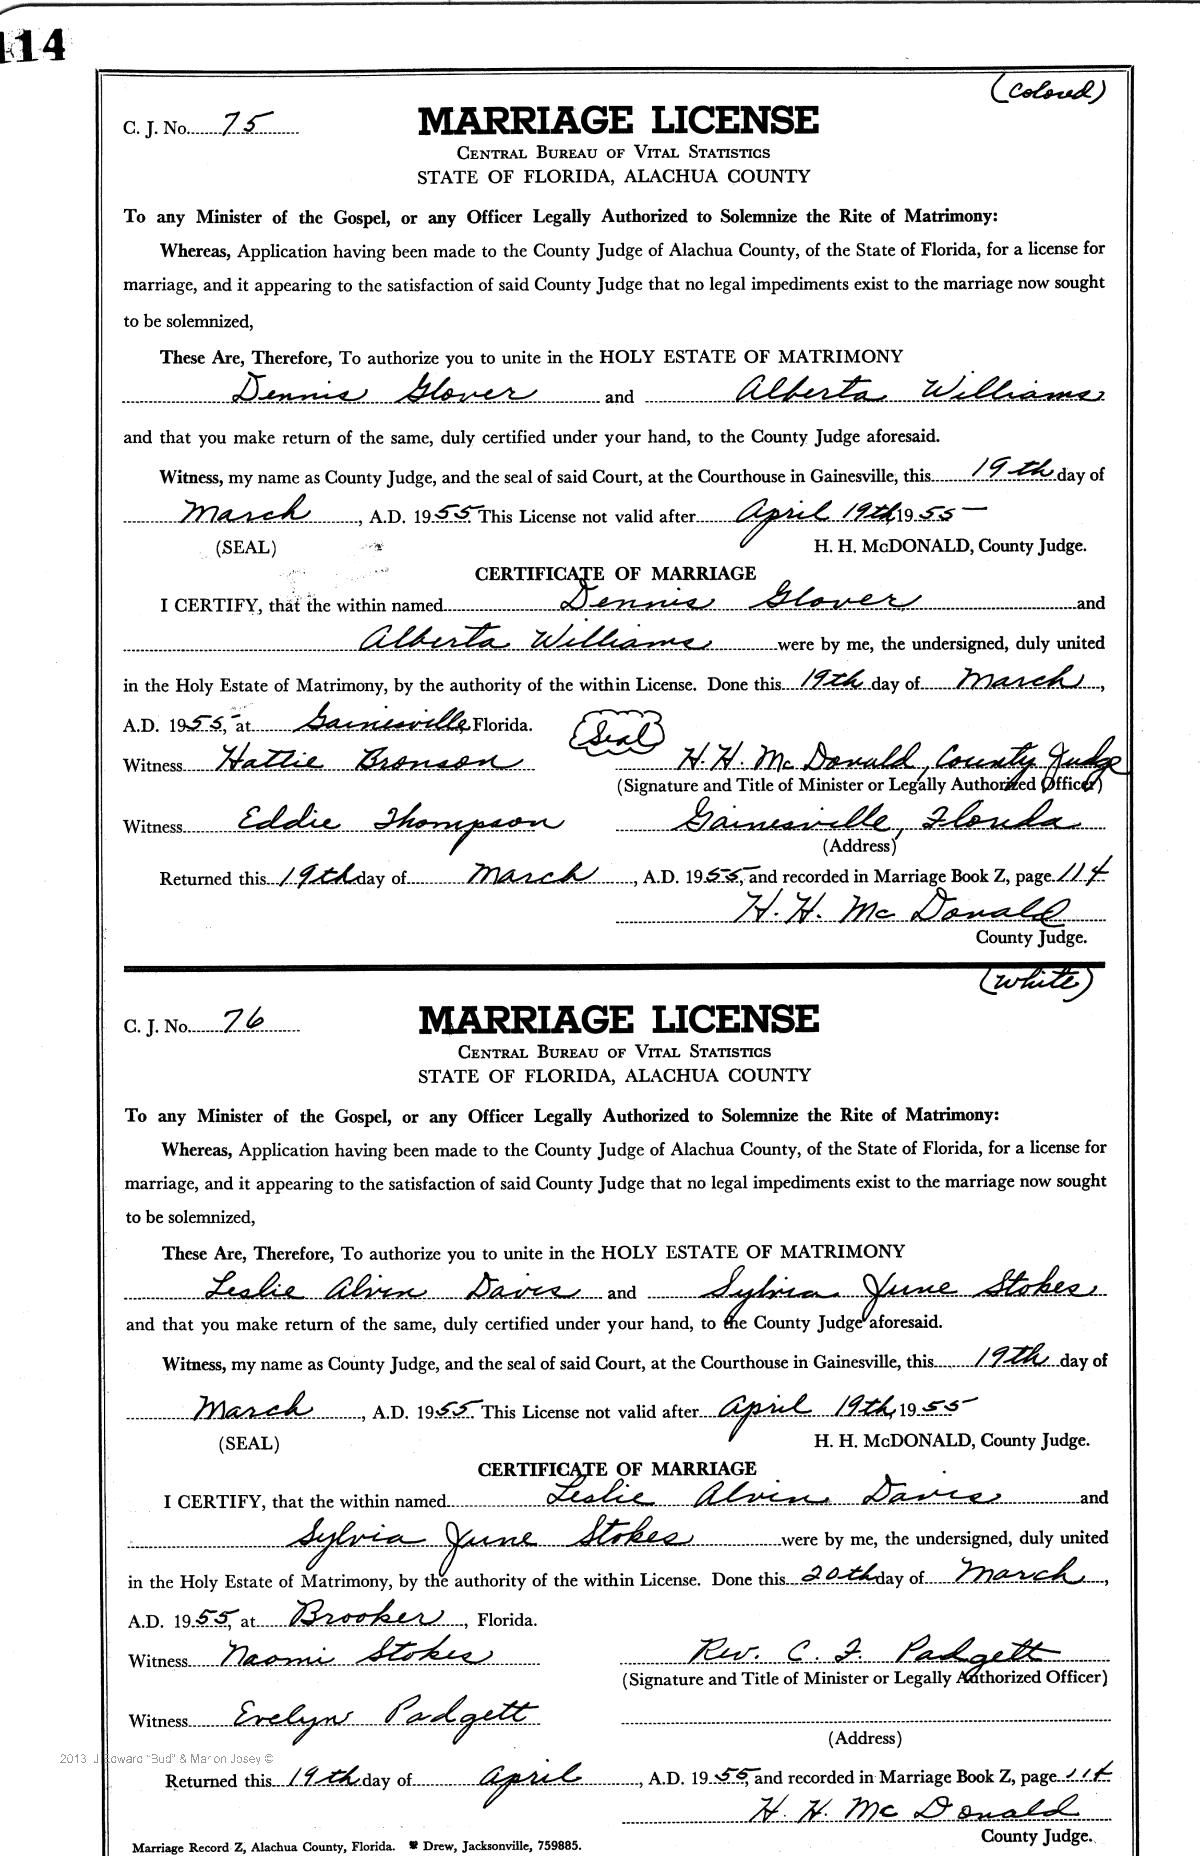 114
(colored)
C. J. No. 75
MARRIAGE LICENSE
CENTRAL BUREAU OF VITAL STATISTICS
STATE OF FLORIDA, ALACHUA COUNTY
To any Minister of the Gospel, or any Officer Legally Authorized to Solemnize the Rite of Matrimony:
Whereas, Application having been made to the County Judge of Alachua County, of the State of Florida, for a license for
marriage, and it appearing to the satisfaction of said County Judge that no legal impediments exist to the marriage now sought
to be solemnized,
These Are, Therefore, To authorize you to unite in the HOLY ESTATE OF MATRIMONY
Dennis Glover and Alberta Williams
and that you make return of the same, duly certified under your hand, to the County Judge aforesaid.
Witness, my name as County Judge, and the seal of said Court, at the Courthouse in Gainesville, this 19th day of
March, A.D. 1955. This License not valid after April 19th, 1955
(SEAL) H. H. McDONALD, County Judge.
CERTIFICATE OF MARRIAGE
I CERTIFY, that the within named Dennis Glover and
Alberta Williams were by me, the undersigned, duly united
in the Holy Estate of Matrimony, by the authority of the within License. Done this 19th day of March,
A.D. 1955, at Gainesville, Florida. (Seal)
Witness Hattie Bronson H. H. McDonald, County Judge
(Signature and Title of Minister or Legally Authorized Officer)
Witness Eddie Thompson Gainesville, Florida
(Address)
Returned this 19th day of March, A.D. 1955, and recorded in Marriage Book Z, page 114
H. H. McDonald
County Judge.
(white)
C. J. No. 76
MARRIAGE LICENSE
CENTRAL BUREAU OF VITAL STATISTICS
STATE OF FLORIDA, ALACHUA COUNTY
To any Minister of the Gospel, or any Officer Legally Authorized to Solemnize the Rite of Matrimony:
Whereas, Application having been made to the County Judge of Alachua County, of the State of Florida, for a license for
marriage, and it appearing to the satisfaction of said County Judge that no legal impediments exist to the marriage now sought
to be solemnized,
These Are, Therefore, To authorize you to unite in the HOLY ESTATE OF MATRIMONY
Leslie Alvin Davis and Sylvia June Stokes
and that you make return of the same, duly certified under your hand, to the County Judge aforesaid.
Witness, my name as County Judge, and the seal of said Court, at the Courthouse in Gainesville, this 19th day of
March, A.D. 1955. This License not valid after April 19th, 1955
(SEAL) H. H. McDONALD, County Judge.
CERTIFICATE OF MARRIAGE
I CERTIFY, that the within named Leslie Alvin Davis and
Sylvia June Stokes were by me, the undersigned, duly united
in the Holy Estate of Matrimony, by the authority of the within License. Done this 20th day of March,
A.D. 1955, at Brooker, Florida.
Witness Naomi Stokes Rev. C. F. Padgett
(Signature and Title of Minister or Legally Authorized Officer)
Witness Evelyn Padgett
(Address)
2013 J Edward "Bud" & Marion Josey ©
Returned this 19th day of April, A.D. 1955, and recorded in Marriage Book Z, page 114
H. H. McDonald
County Judge.
Marriage Record Z, Alachua County, Florida. Drew, Jacksonville, 759885.